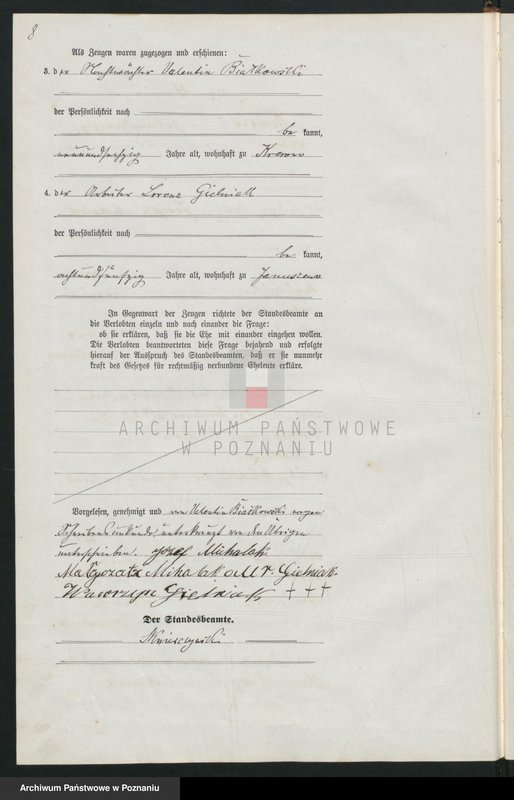 8
Als Zeugen waren zugezogen und erschienen:
3. der Nachtwächter Valentin Białkowski
der Persönlichkeit nach
be kannt,
neunundsechzig Jahre alt, wohnhaft zu Krerowo
4. der Arbeiter Lorenz Gielniak
der Persönlichkeit nach
be kannt,
achtundfünfzig Jahre alt, wohnhaft zu Januszewo
In Gegenwart der Zeugen richtete der Standesbeamte an
die Verlobten einzeln und nach einander die Frage:
ob sie erklären, daß sie die Ehe mit einander eingehen wollen.
Die Verlobten beantworteten diese Frage bejahend und erfolgte
hierauf der Ausspruch des Standesbeamten, daß er sie nunmehr
kraft des Gesetzes für rechtmäßig verbundene Eheleute erkläre.
ARCHIWUM PAŃSTWOWE
W POZNANIU
Vorgelesen, genehmigt und von Valentin Białkowski wegen
Schreibensunkunde unterkreuzt von den Übrigen
unterschrieben. Józef Michalak
Małgorzata Mihalak Gielniak
Wawrzyn Gielniak +++
Der Standesbeamte.
Archiwum Państwowe w Poznaniu